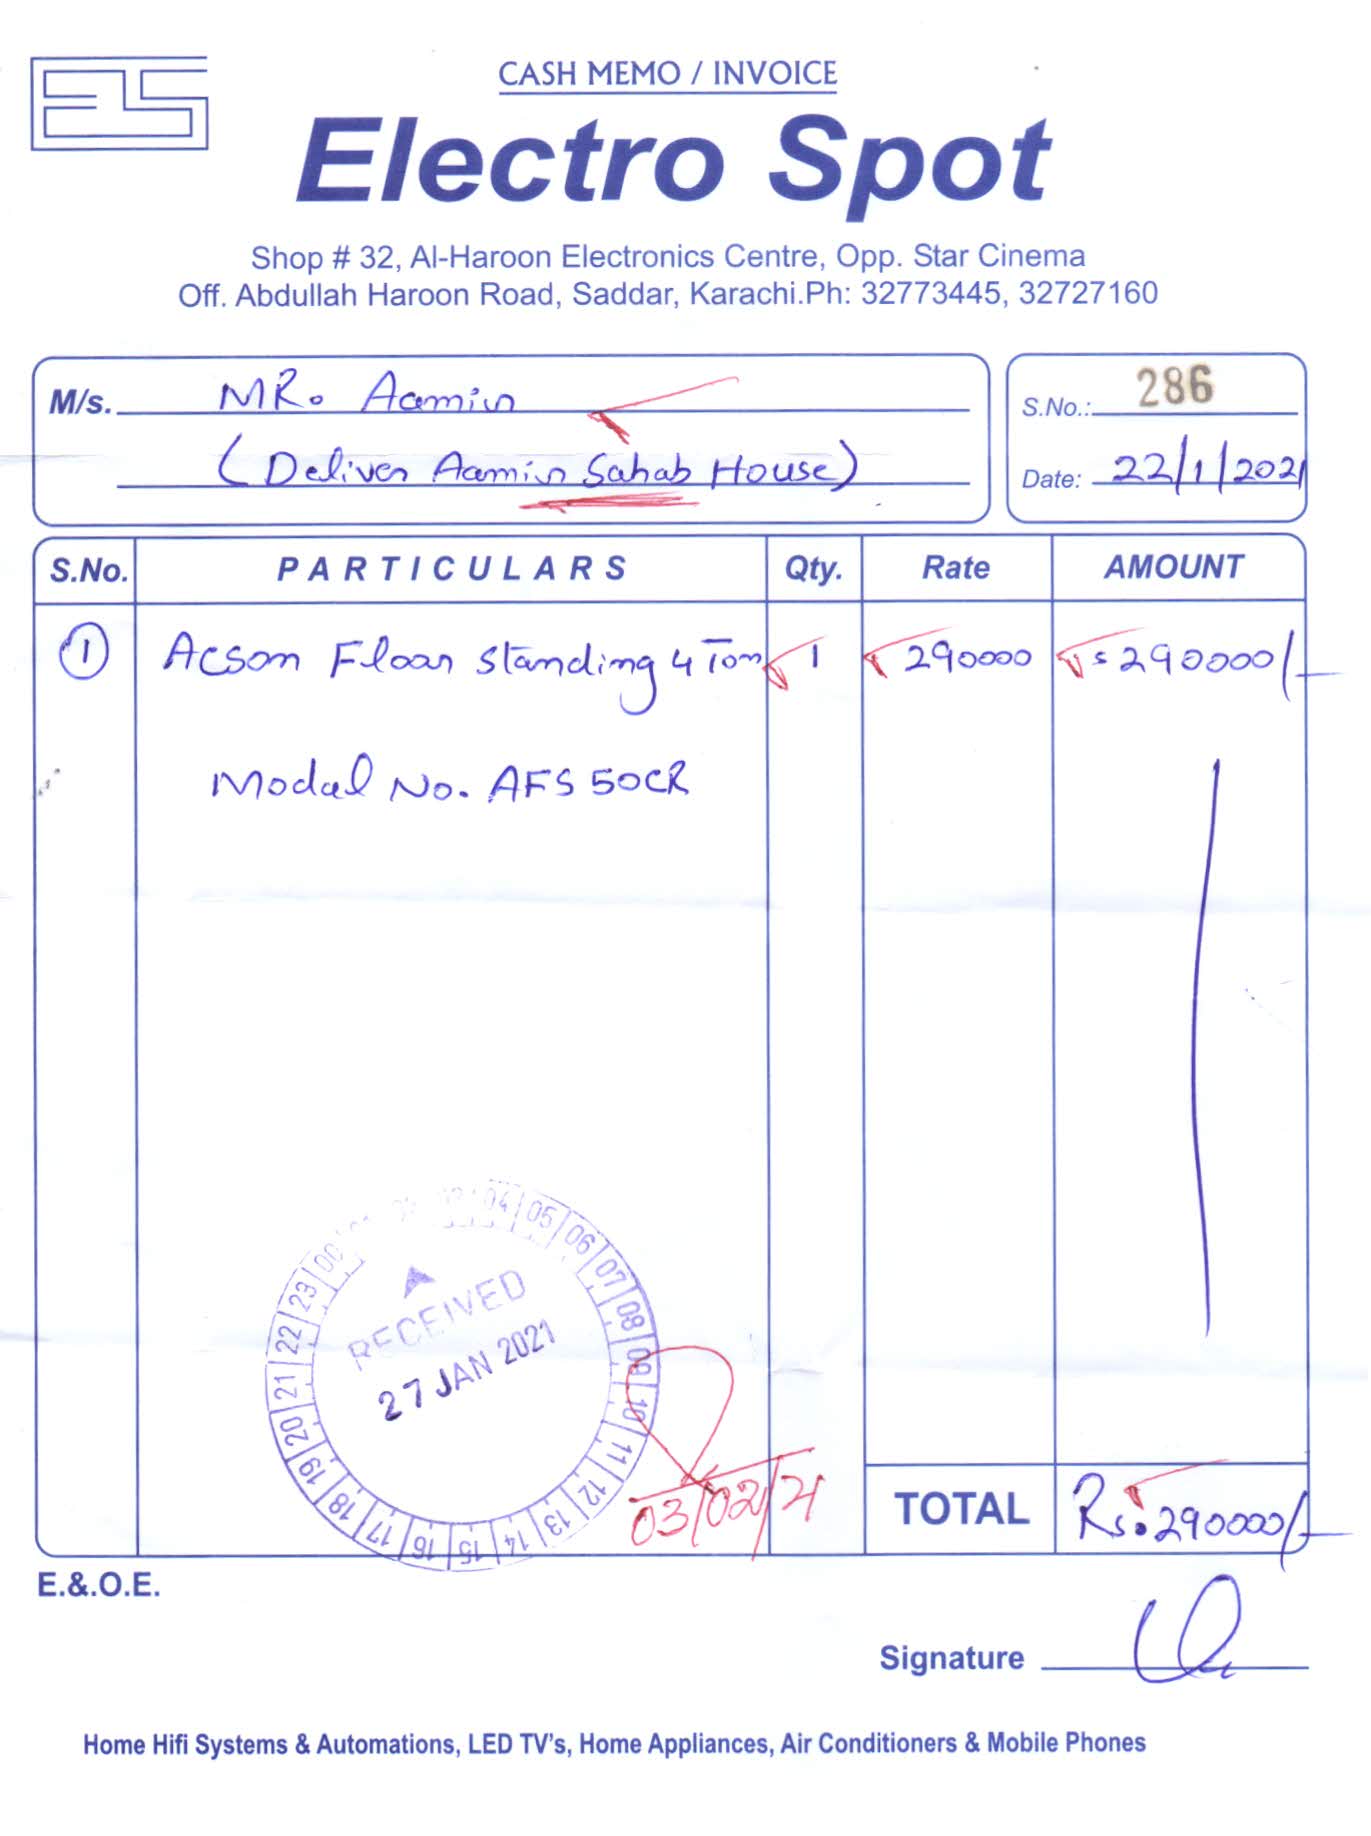 ES
CASH MEMO / INVOICE
Electro Spot
Shop # 32, Al-Haroon Electronics Centre, Opp. Star Cinema
Off. Abdullah Haroon Road, Saddar, Karachi.Ph: 32773445, 32727160
M/s. MR. Aamir
(Deliver Aamir Sahab House)
S.No.: 286
Date: 22/1/2021
S.No. PARTICULARS Qty. Rate AMOUNT
1 Acson Floor Standing 4 Ton 1 290000 290000/-
Modal No. AFS 50CR
04 05 06 07 08 09 10 11 12 13 14 15 16 17 18 19 20 21 22 23 00
RECEIVED
27 JAN 2021
03/02/21
TOTAL Rs. 290000/-
E.&.O.E.
Signature
Home Hifi Systems & Automations, LED TV's, Home Appliances, Air Conditioners & Mobile Phones